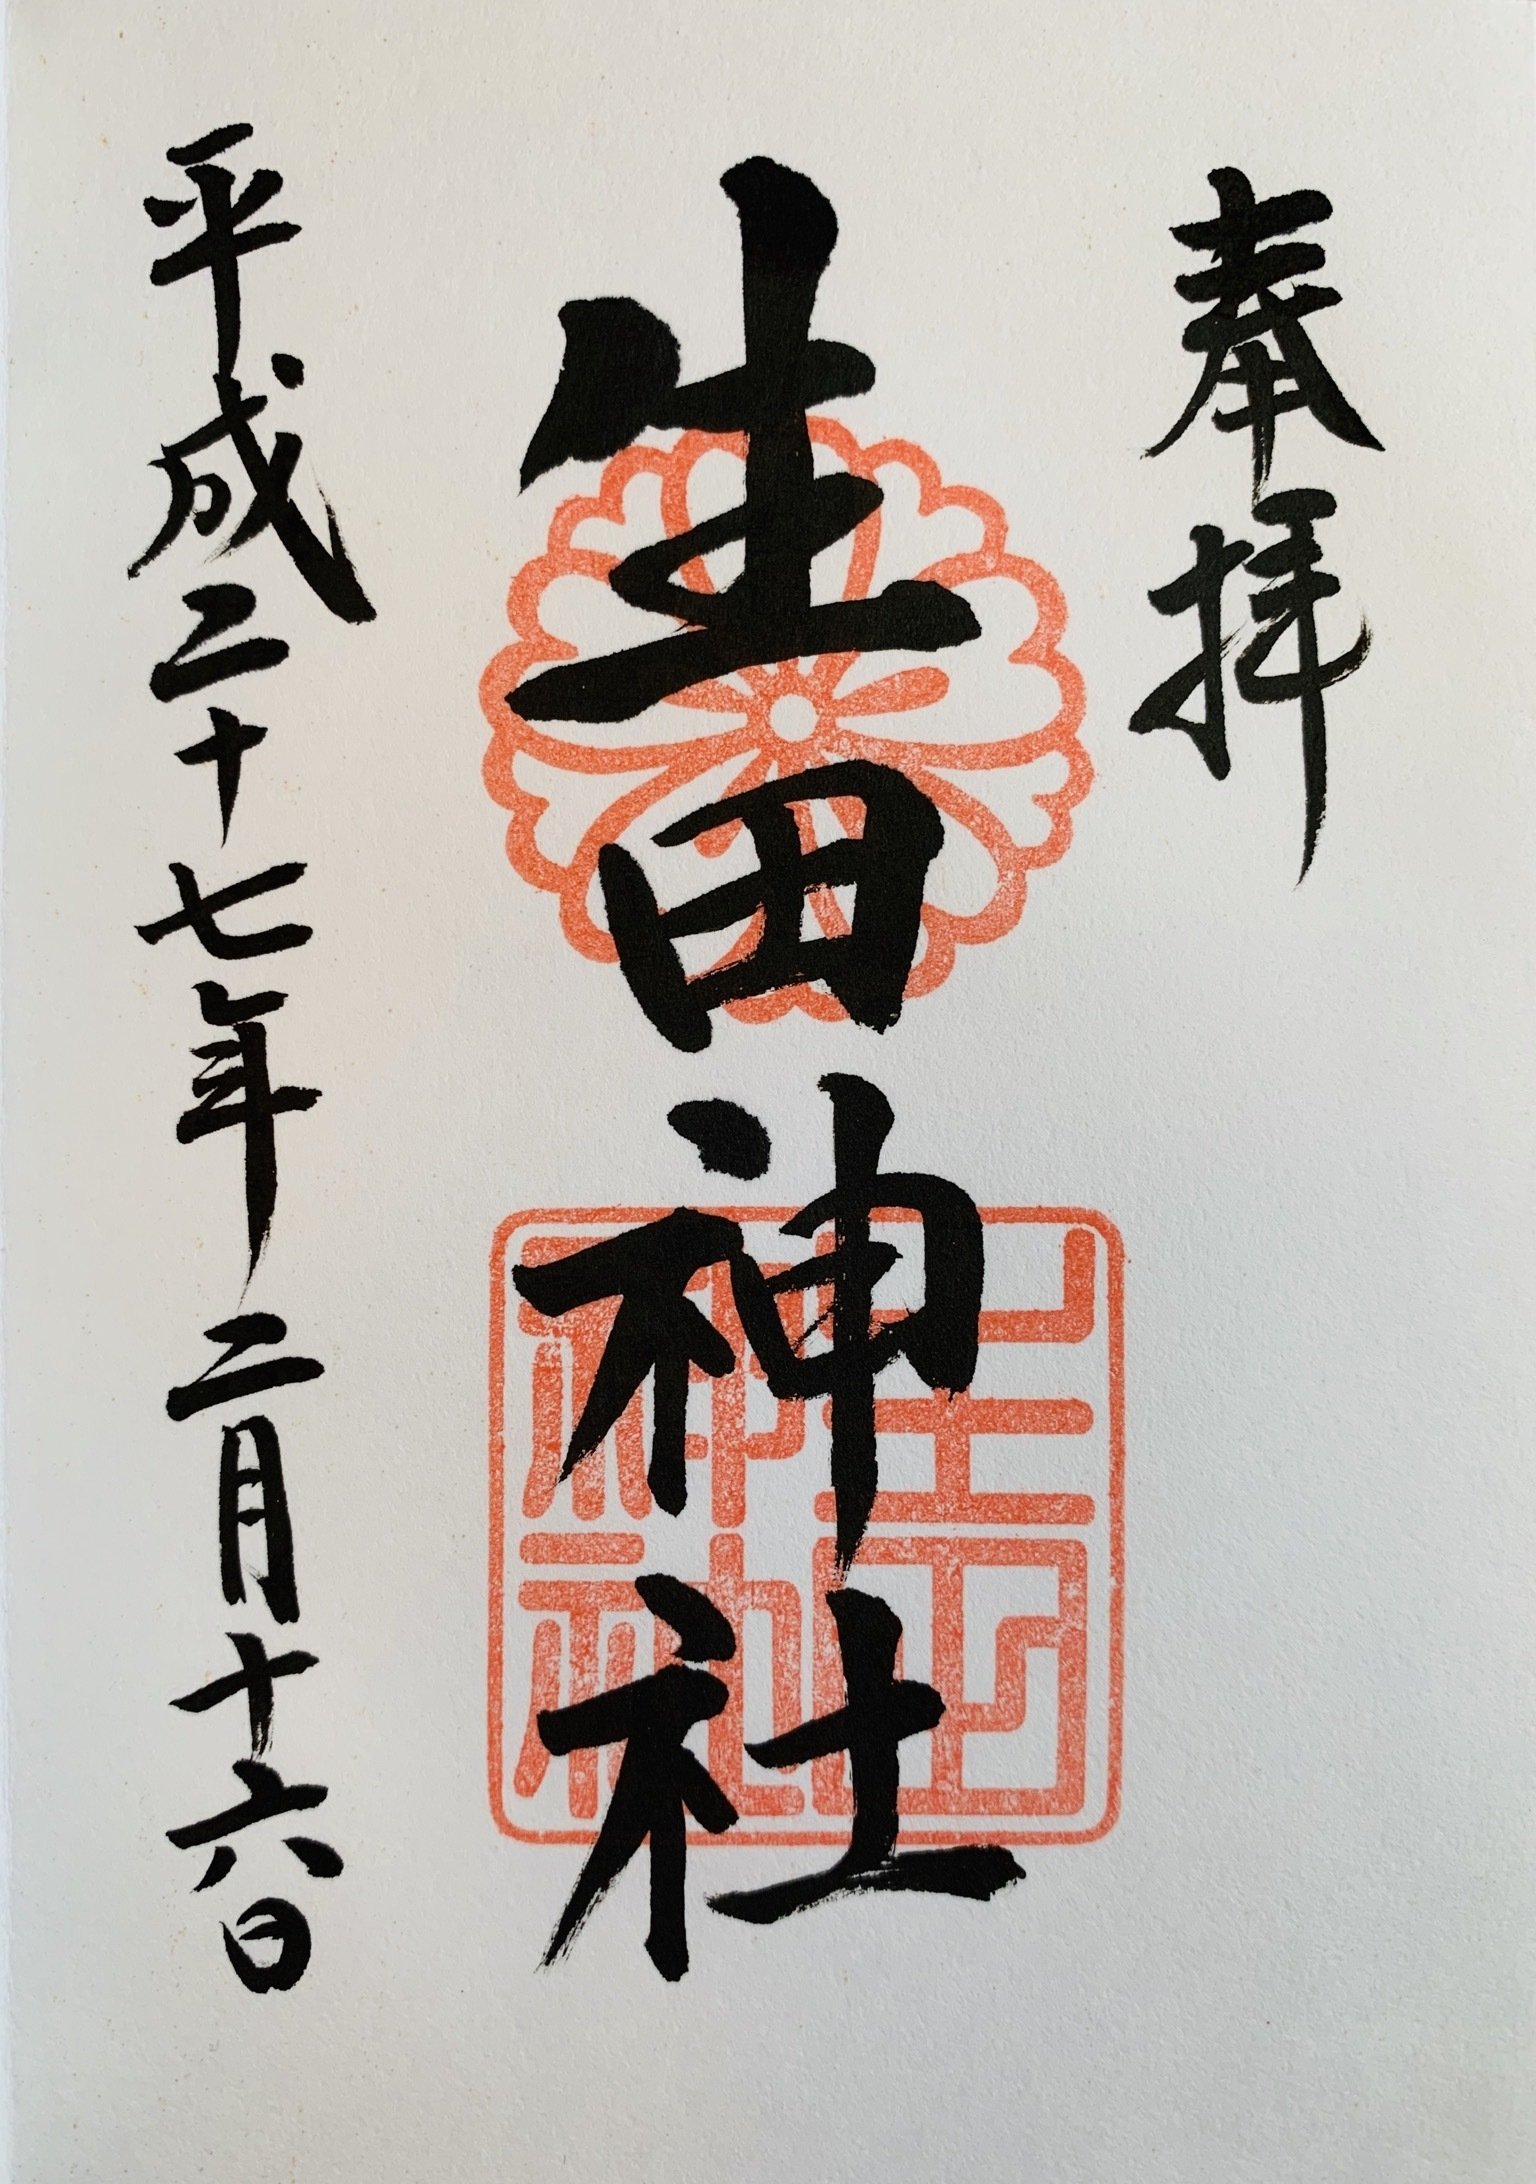 奉拝
生田神社
生田神社
平成二十七年二月十六日